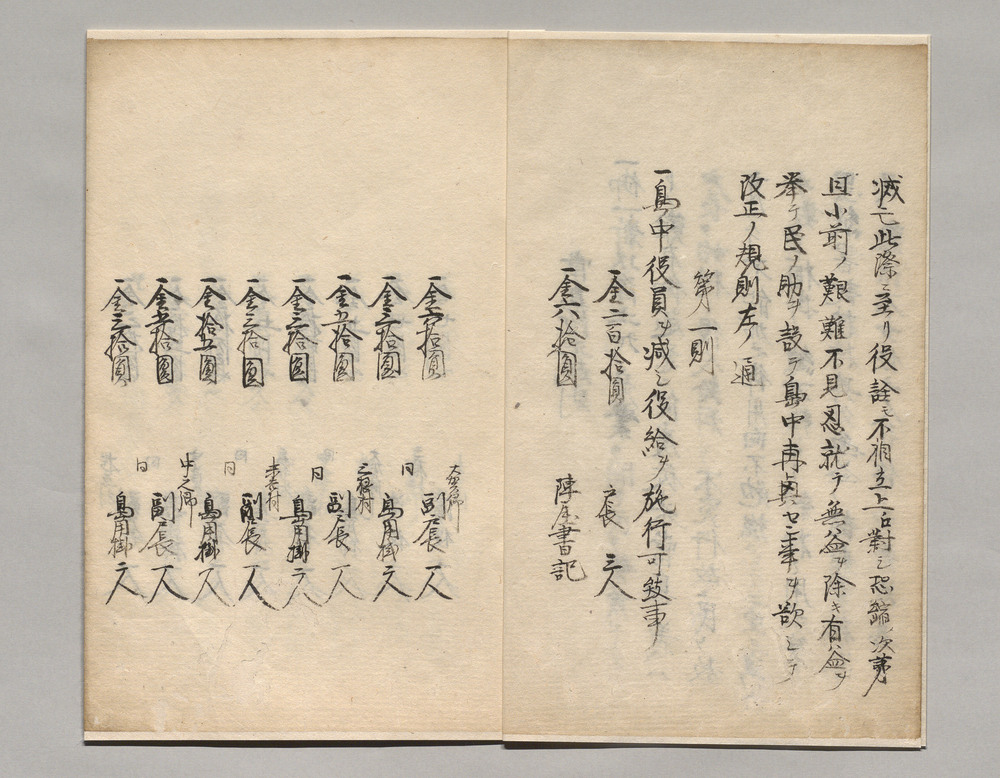 滅亡此際ニ至リ役詮モ不相立上ニ対シ恐縮ノ次第
且小前ノ難難不見忍就テ無益ヲ除キ有益ヲ
挙テ民ノ助ヲ設テ島中再興セン事ヲ欲シテ
改正ノ規則左ノ通
第一則
一島中役員ヲ減シ役給ヲ施行可致事
一金二百拾圓 戸長 三人
一金六拾圓 陣屋書記
一金六拾圓 大賀郷 副戸長 一人
一金三拾圓 同 島用掛 二人
一金五拾圓 三根村 副戸長 一人
一金三拾圓 同 島用掛 二人
一金三拾圓 末吉村 副戸長 一人
一金拾五圓 同 島用掛 一人
一金五拾圓 中之郷 副戸長 一人
一金三拾圓 同 島用掛 二人